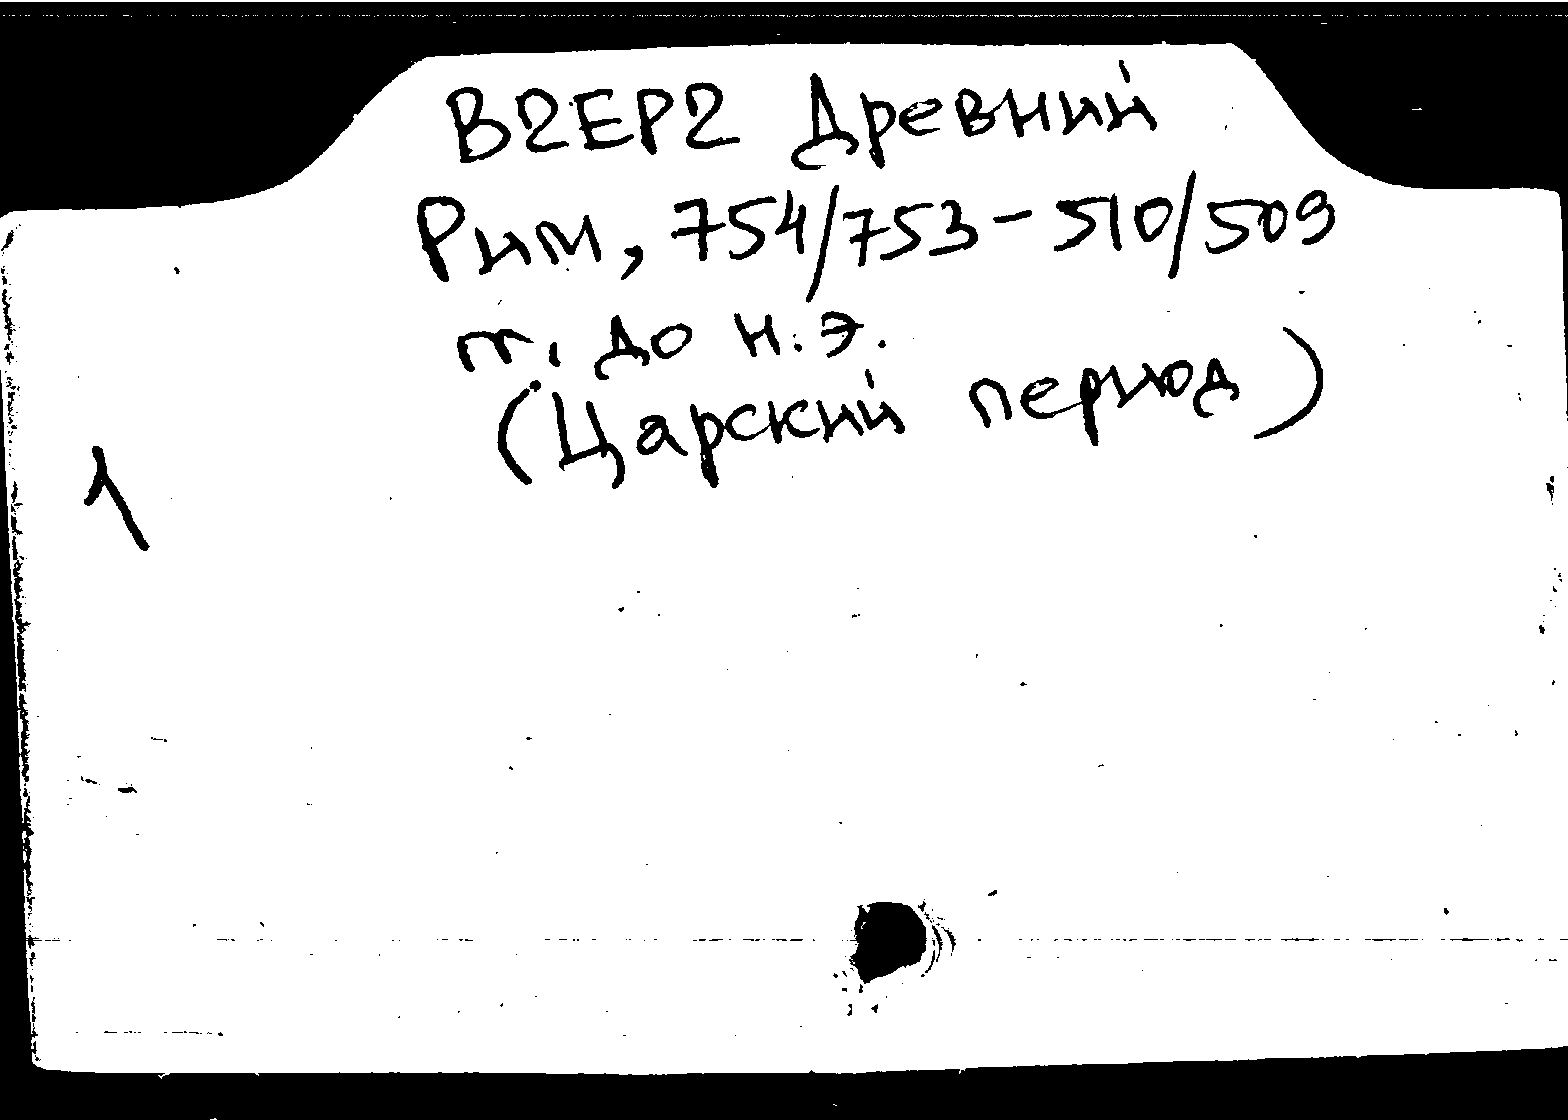 В2ЕР2 Древний
Рим, 754/753-510/509
гг. до н.э.
(Царский период)
1